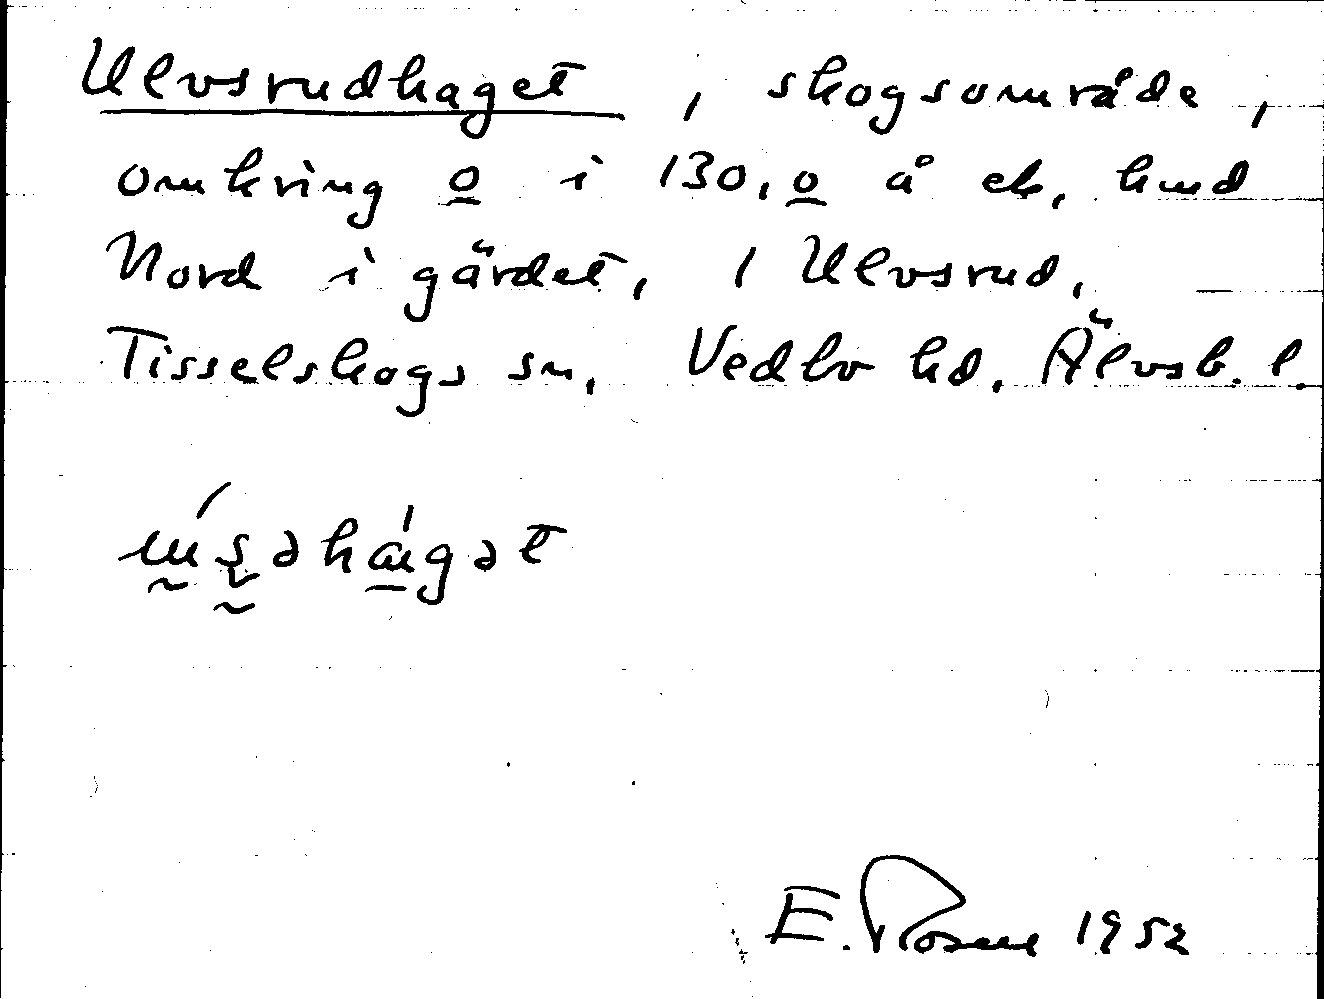 Ulvsrudhaget, skogsområde,
omkring o i 130,o å ek. kmd
Nord i gärdet, 1 Ulvsrud,
Tisselskogs sn, Vedbo hd. Älvsb. l.
E. 1952